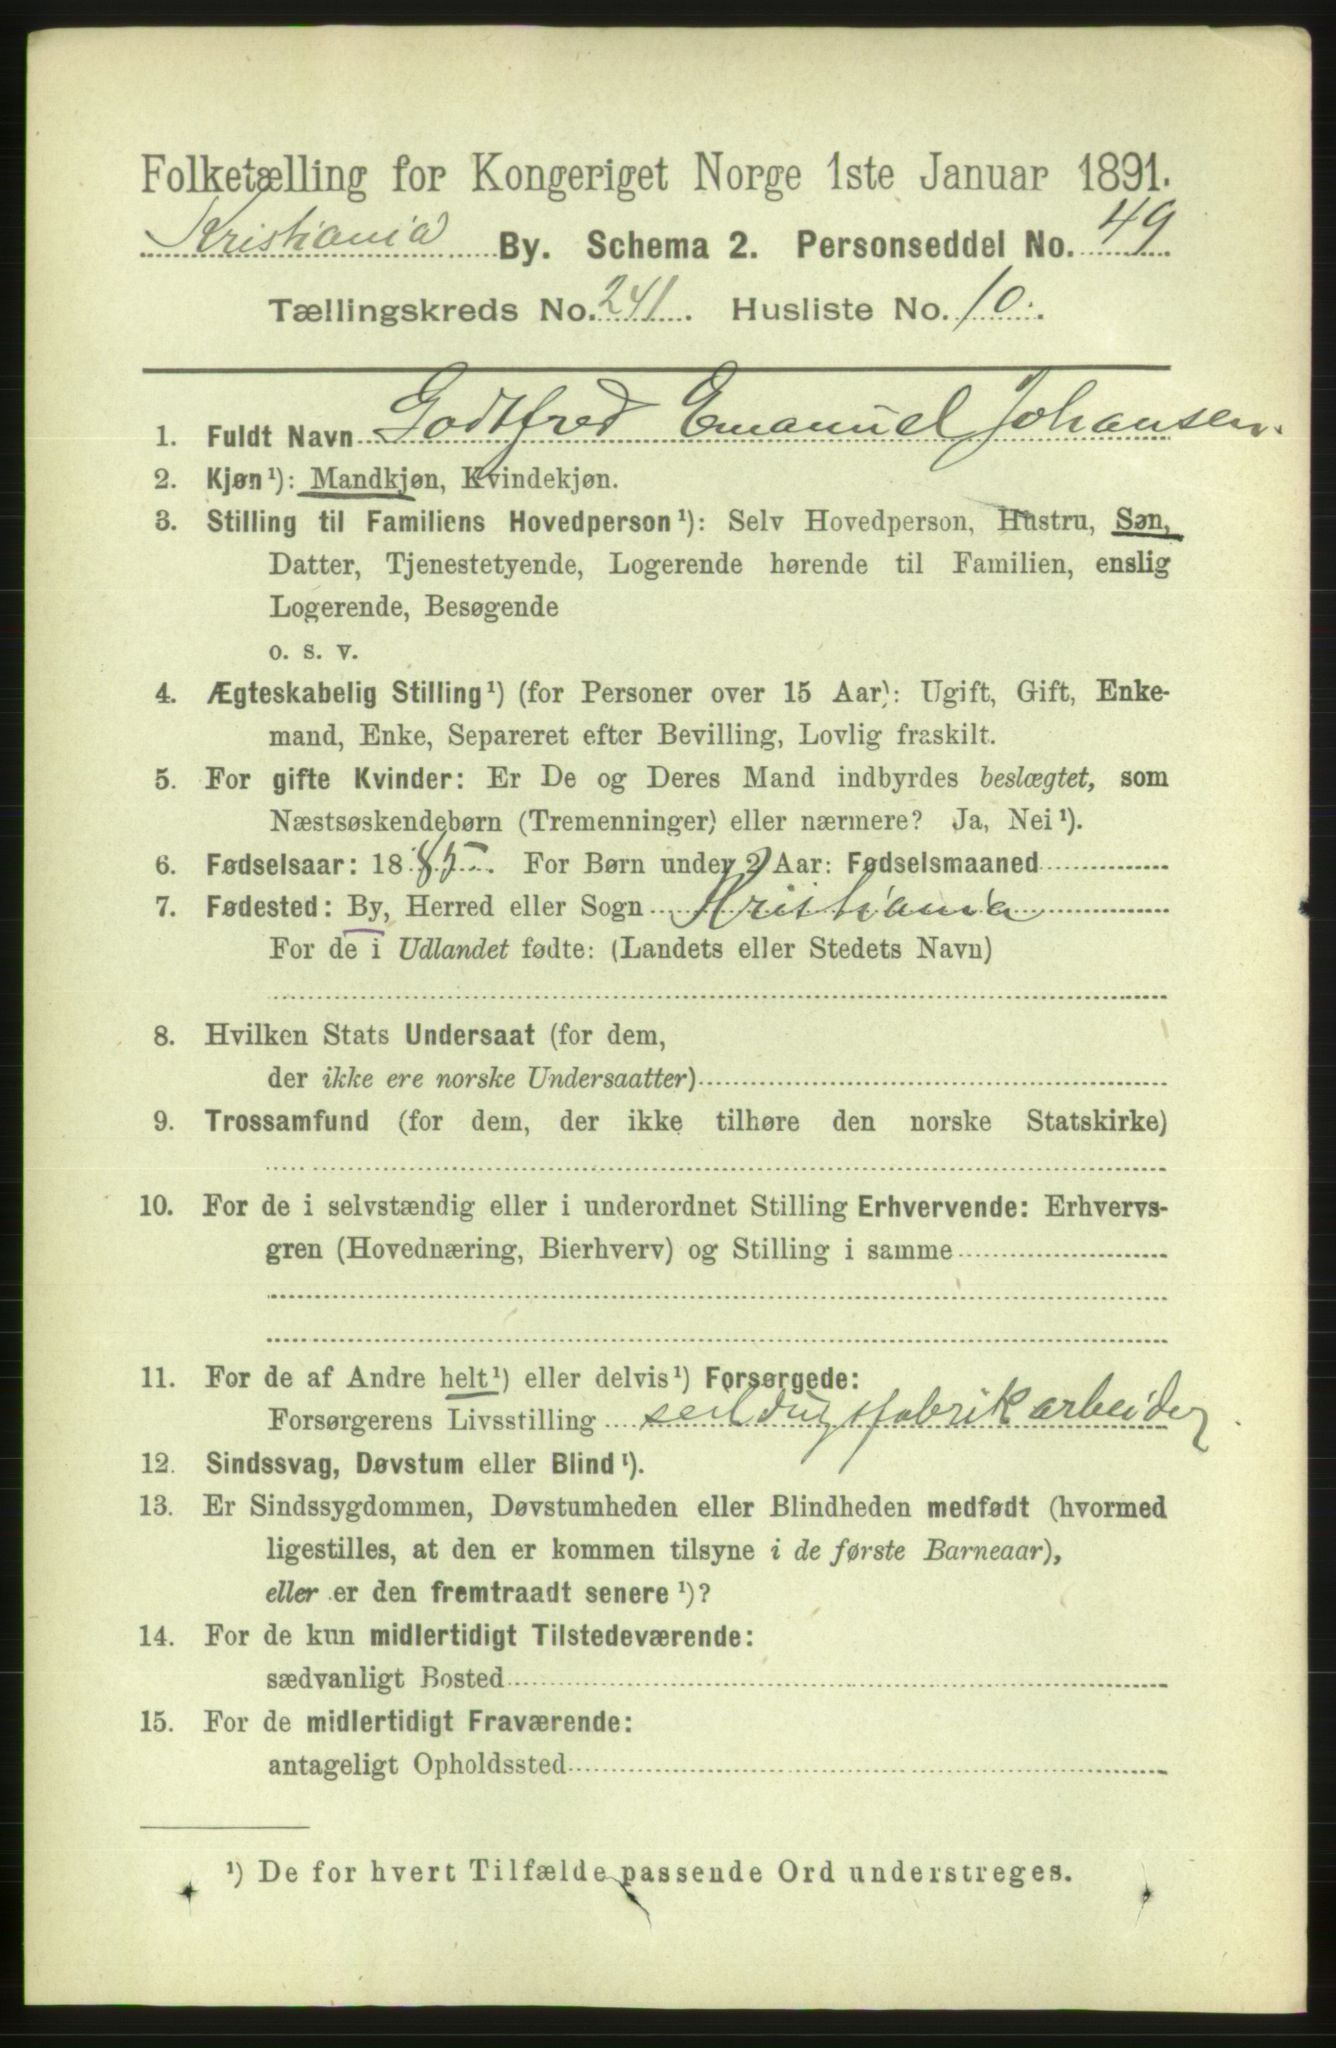 Folketælling for Kongeriget Norge 1ste Januar 1891.
Kristiania By. Schema 2. Personseddel No. 49
Tællingskreds No. 241. Husliste No. 10.
1. Fuldt Navn Godtfred Emanuel Johansen.
2. Kjøn¹): Mandkjøn, Kvindekjøn.
3. Stilling til Familiens Hovedperson¹): Selv Hovedperson, Hustru, Søn,
Datter, Tjenestetyende, Logerende hørende til Familien, enslig
Logerende, Besøgende
o. s. v.
4. Ægteskabelig Stilling¹) (for Personer over 15 Aar): Ugift, Gift, Enke-
mand, Enke, Separeret efter Bevilling, Lovlig fraskilt.
5. For gifte Kvinder: Er De og Deres Mand indbyrdes beslægtet, som
Næstsøskendebørn (Tremenninger) eller nærmere? Ja, Nei¹).
6. Fødselsaar: 1885. For Børn under 2 Aar: Fødselsmaaned
7. Fødested: By, Herred eller Sogn Kristiania
For de i Udlandet fødte: (Landets eller Stedets Navn)
8. Hvilken Stats Undersaat (for dem,
der ikke ere norske Undersaatter)
9. Trossamfund (for dem, der ikke tilhøre den norske Statskirke)
10. For de i selvstændig eller i underordnet Stilling Erhvervende: Erhvervs-
gren (Hovednæring, Bierhverv) og Stilling i samme
11. For de af Andre helt¹) eller delvis¹) Forsørgede:
Forsørgerens Livsstilling seildugsfabrikarbeider
12. Sindssvag, Døvstum eller Blind¹).
13. Er Sindssygdommen, Døvstumheden eller Blindheden medfødt (hvormed
ligestilles, at den er kommen tilsyne i de første Barneaar),
eller er den fremtraadt senere¹)?
14. For de kun midlertidigt Tilstedeværende:
sædvanligt Bosted
15. For de midlertidigt Fraværende:
antageligt Opholdssted
¹) De for hvert Tilfælde passende Ord understreges.